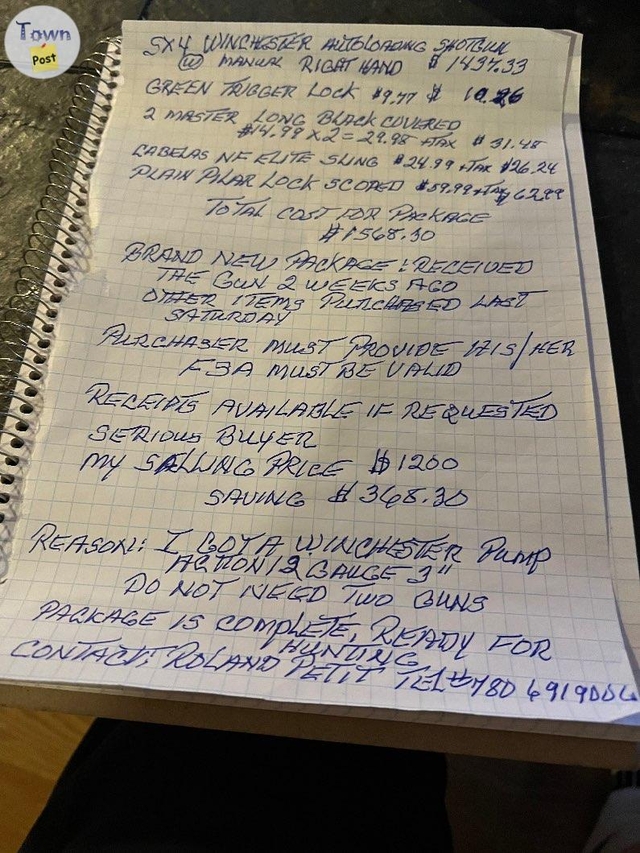 Town
Post
SX4 WINCHESTER AUTOLOADING SHOTGUN
W MANUAL RIGHT HAND $1497.33
GREEN TRIGGER LOCK $9.77 $ 10.26
2 MASTER LONG BLACK COVERED
$14.99 X 2 = 29.98 + TAX $31.48
CABELAS NF ELITE SLING $24.99 + TAX $26.24
PLAIN PILAR LOCK SCOPED $59.99 + TAX $62.99
TOTAL COST FOR PACKAGE
$1568.30
BRAND NEW PACKAGE! RECEIVED
THE GUN 2 WEEKS AGO
OTHER ITEMS PURCHASED LAST
SATURDAY
PURCHASER MUST PROVIDE HIS/HER
MUST BE VALID
RECEIPTS AVAILABLE IF REQUESTED
SERIOUS BUYER
MY SALLING PRICE $1200
SAVING $368.30
REASON: I GOT A WINCHESTER PUMP
ACTION 12 GAUGE 3"
DO NOT NEED TWO GUNS
PACKAGE IS COMPLETE, READY FOR
HUNTING
CONTACT: ROLAND PETIT TEL# 780 6919006